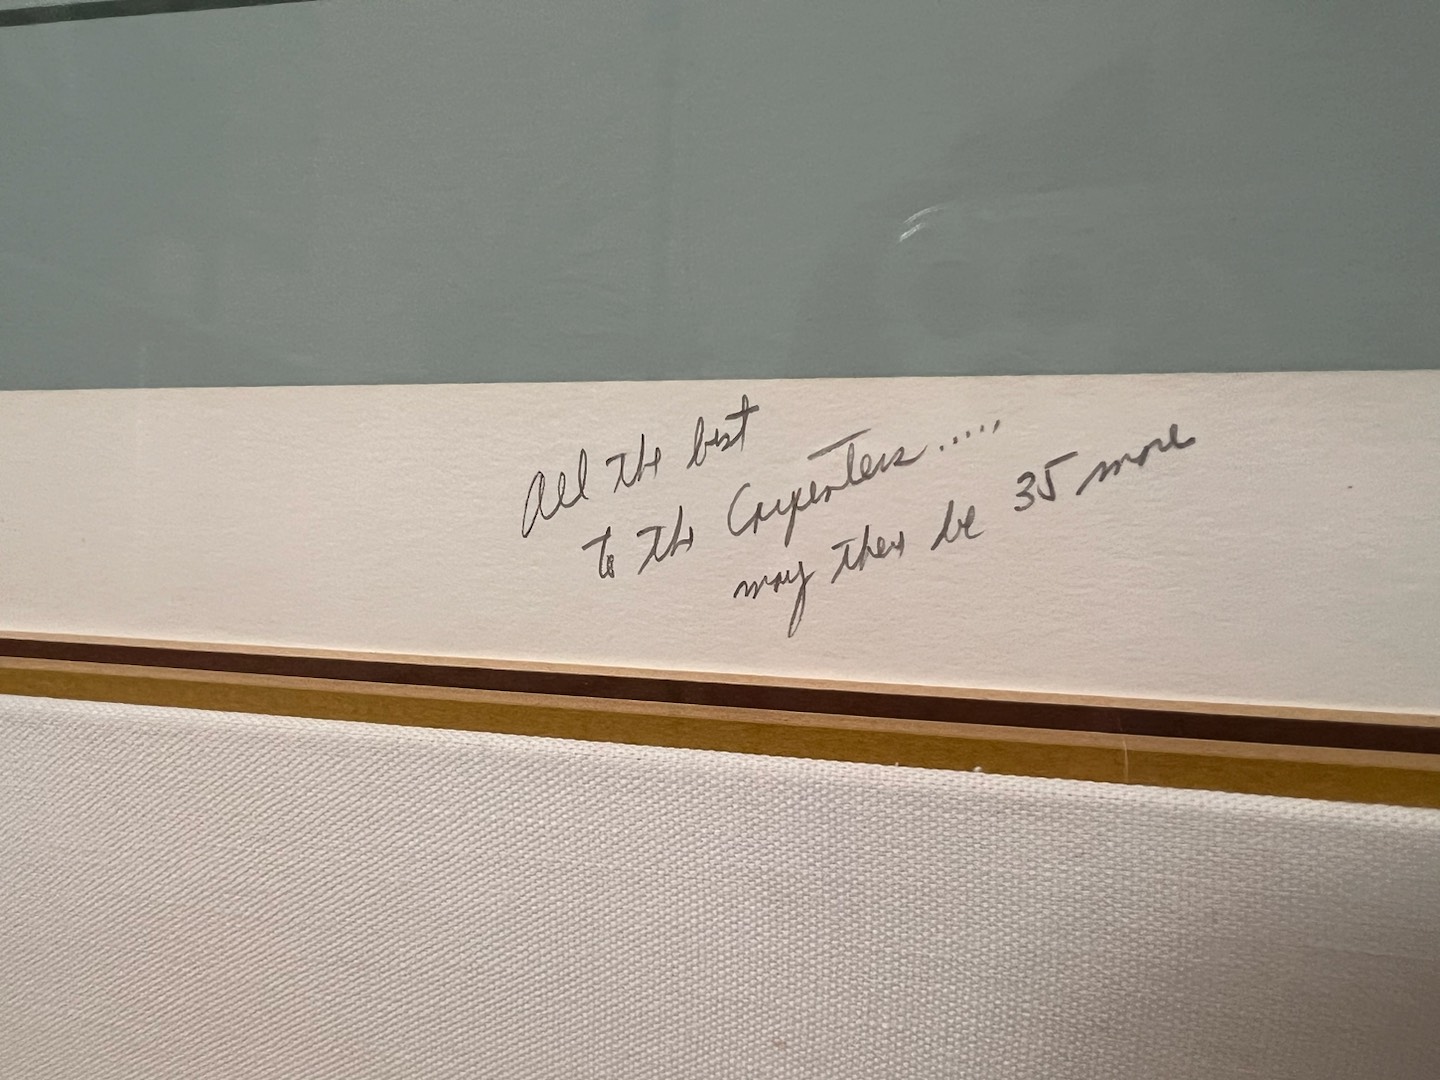 All the best
to the Carpenters.....
may there be 35 more